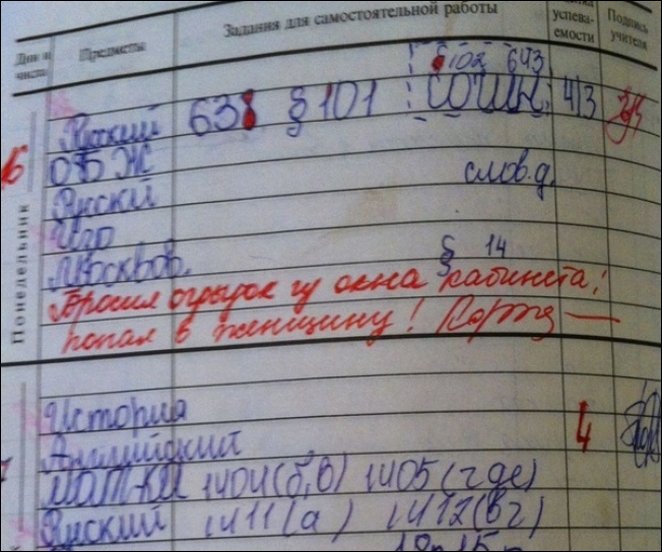 Дни и числа
Предметы
Задания для самостоятельной работы
успева-
емости
Подпись учителя
§102 643
Русский 638 §101 СОЧИН. 4/3
16
ОБЖ
Русски слов.д.
Изо
Москвов. § 14
Понедельник
Бросил огрызок из окна кабинета!
попал в женщину!
История
Английский 4
МАТ-КА 1404(б,в) 1405(где)
Русский 1411(а) 1412(вг)